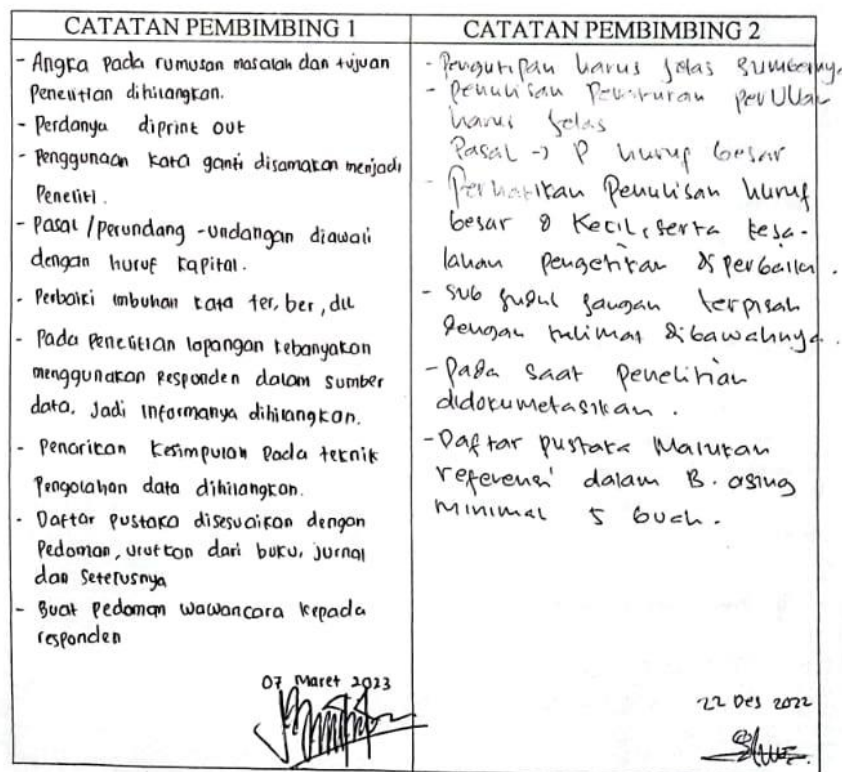 CATATAN PEMBIMBING 1
- Angka pada rumusan masalah dan tujuan
Penelitian dihilangkan.
- Perdanya diprint out
- Penggunaan kata ganti disamakan menjadi
Peneliti.
- Pasal / perundang - undangan diawali
dengan huruf kapital.
- Perbaiki imbuhan kata ter, ber, dll
- Pada Penelitian lapangan kebanyakan
menggunakan Responden dalam sumber
data. Jadi Informanya dihilangkan.
- Penarikan kesimpulan Pada teknik
Pengolahan data dihilangkan.
- Daftar pustaka disesuaikan dengan
Pedoman, urutkan dari buku, jurnal
dan Seterusnya
- Buat Pedoman wawancara kepada
responden
07 Maret 2023
CATATAN PEMBIMBING 2
- Pengutipan harus jelas sumbernya
- Penulisan Peraturan perUUan
harus jelas
Pasal -> P huruf besar
- Perhatikan Penulisan huruf
besar & Kecil, serta kesa-
lahan pengetikan diperbaiki.
- Sub judul jangan terpisah
dengan kalimat dibawahnya.
- Pada saat penelitian
didokumetasikan.
- Daftar pustaka Masukan
referensi dalam B. asing
minimal 5 buah.
22 Des 2022